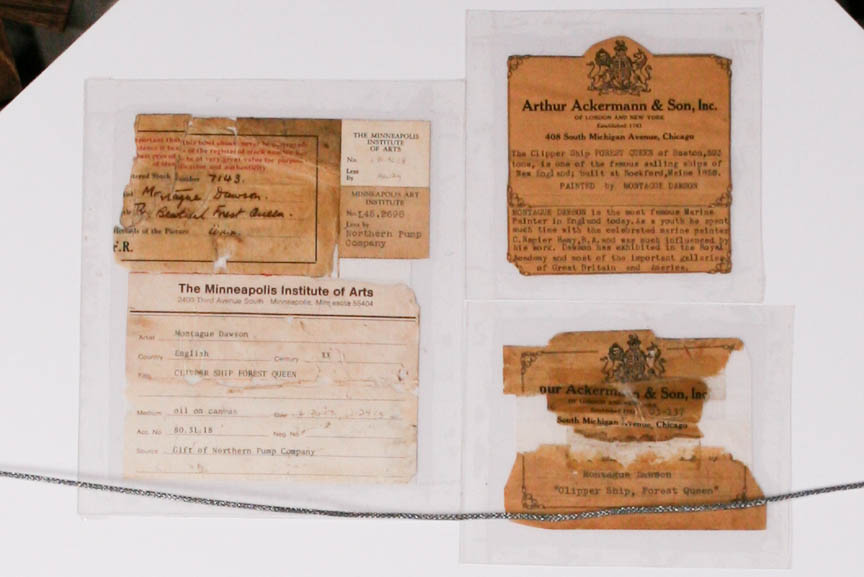 important that this label should never be
of the registered stock number
be at very great value for purpose
of identification and authenticity.
Stock Number 7143.
Montague Dawson.
Forest Queen.
Records of the Picture
F.R.
THE MINNEAPOLIS
INSTITUTE
OF ARTS
No.
Lent
By
MINNEAPOLIS ART
INSTITUTE
No. L45.2698
Lent by
Northern Pump
Company
The Minneapolis Institute of Arts
2400 Third Avenue South Minneapolis, Minnesota 55404
Artist Montague Dawson
Country English Century XX
Title CLIPPER SHIP FOREST QUEEN
Medium oil on canvas Size
Acc. No. 80.31.18 Neg. No.
Source Gift of Northern Pump Company
Arthur Ackermann & Son, Inc.
OF LONDON AND NEW YORK
Established 1783
408 South Michigan Avenue, Chicago
The Clipper Ship FOREST QUEEN of Boston,
tons, is one of the famous sailing ships of
New England; built at Rockford,Maine
PAINTED by MONTAGUE DAWSON
MONTAGUE DAWSON is the most famous Marine
Painter in England today. As a youth he spent
much time with the celebrated marine painter
C.Napier Hemy,R.A.and was much influenced by
his work. Dawson has exhibited in the Royal
Academy and most of the important galleries
of Great Britain and America.
our Ackermann & Son, Inc
OF LONDON AND NEW YORK
Established
South Michigan Avenue, Chicago
Montague Dawson
"Clipper Ship, Forest Queen"